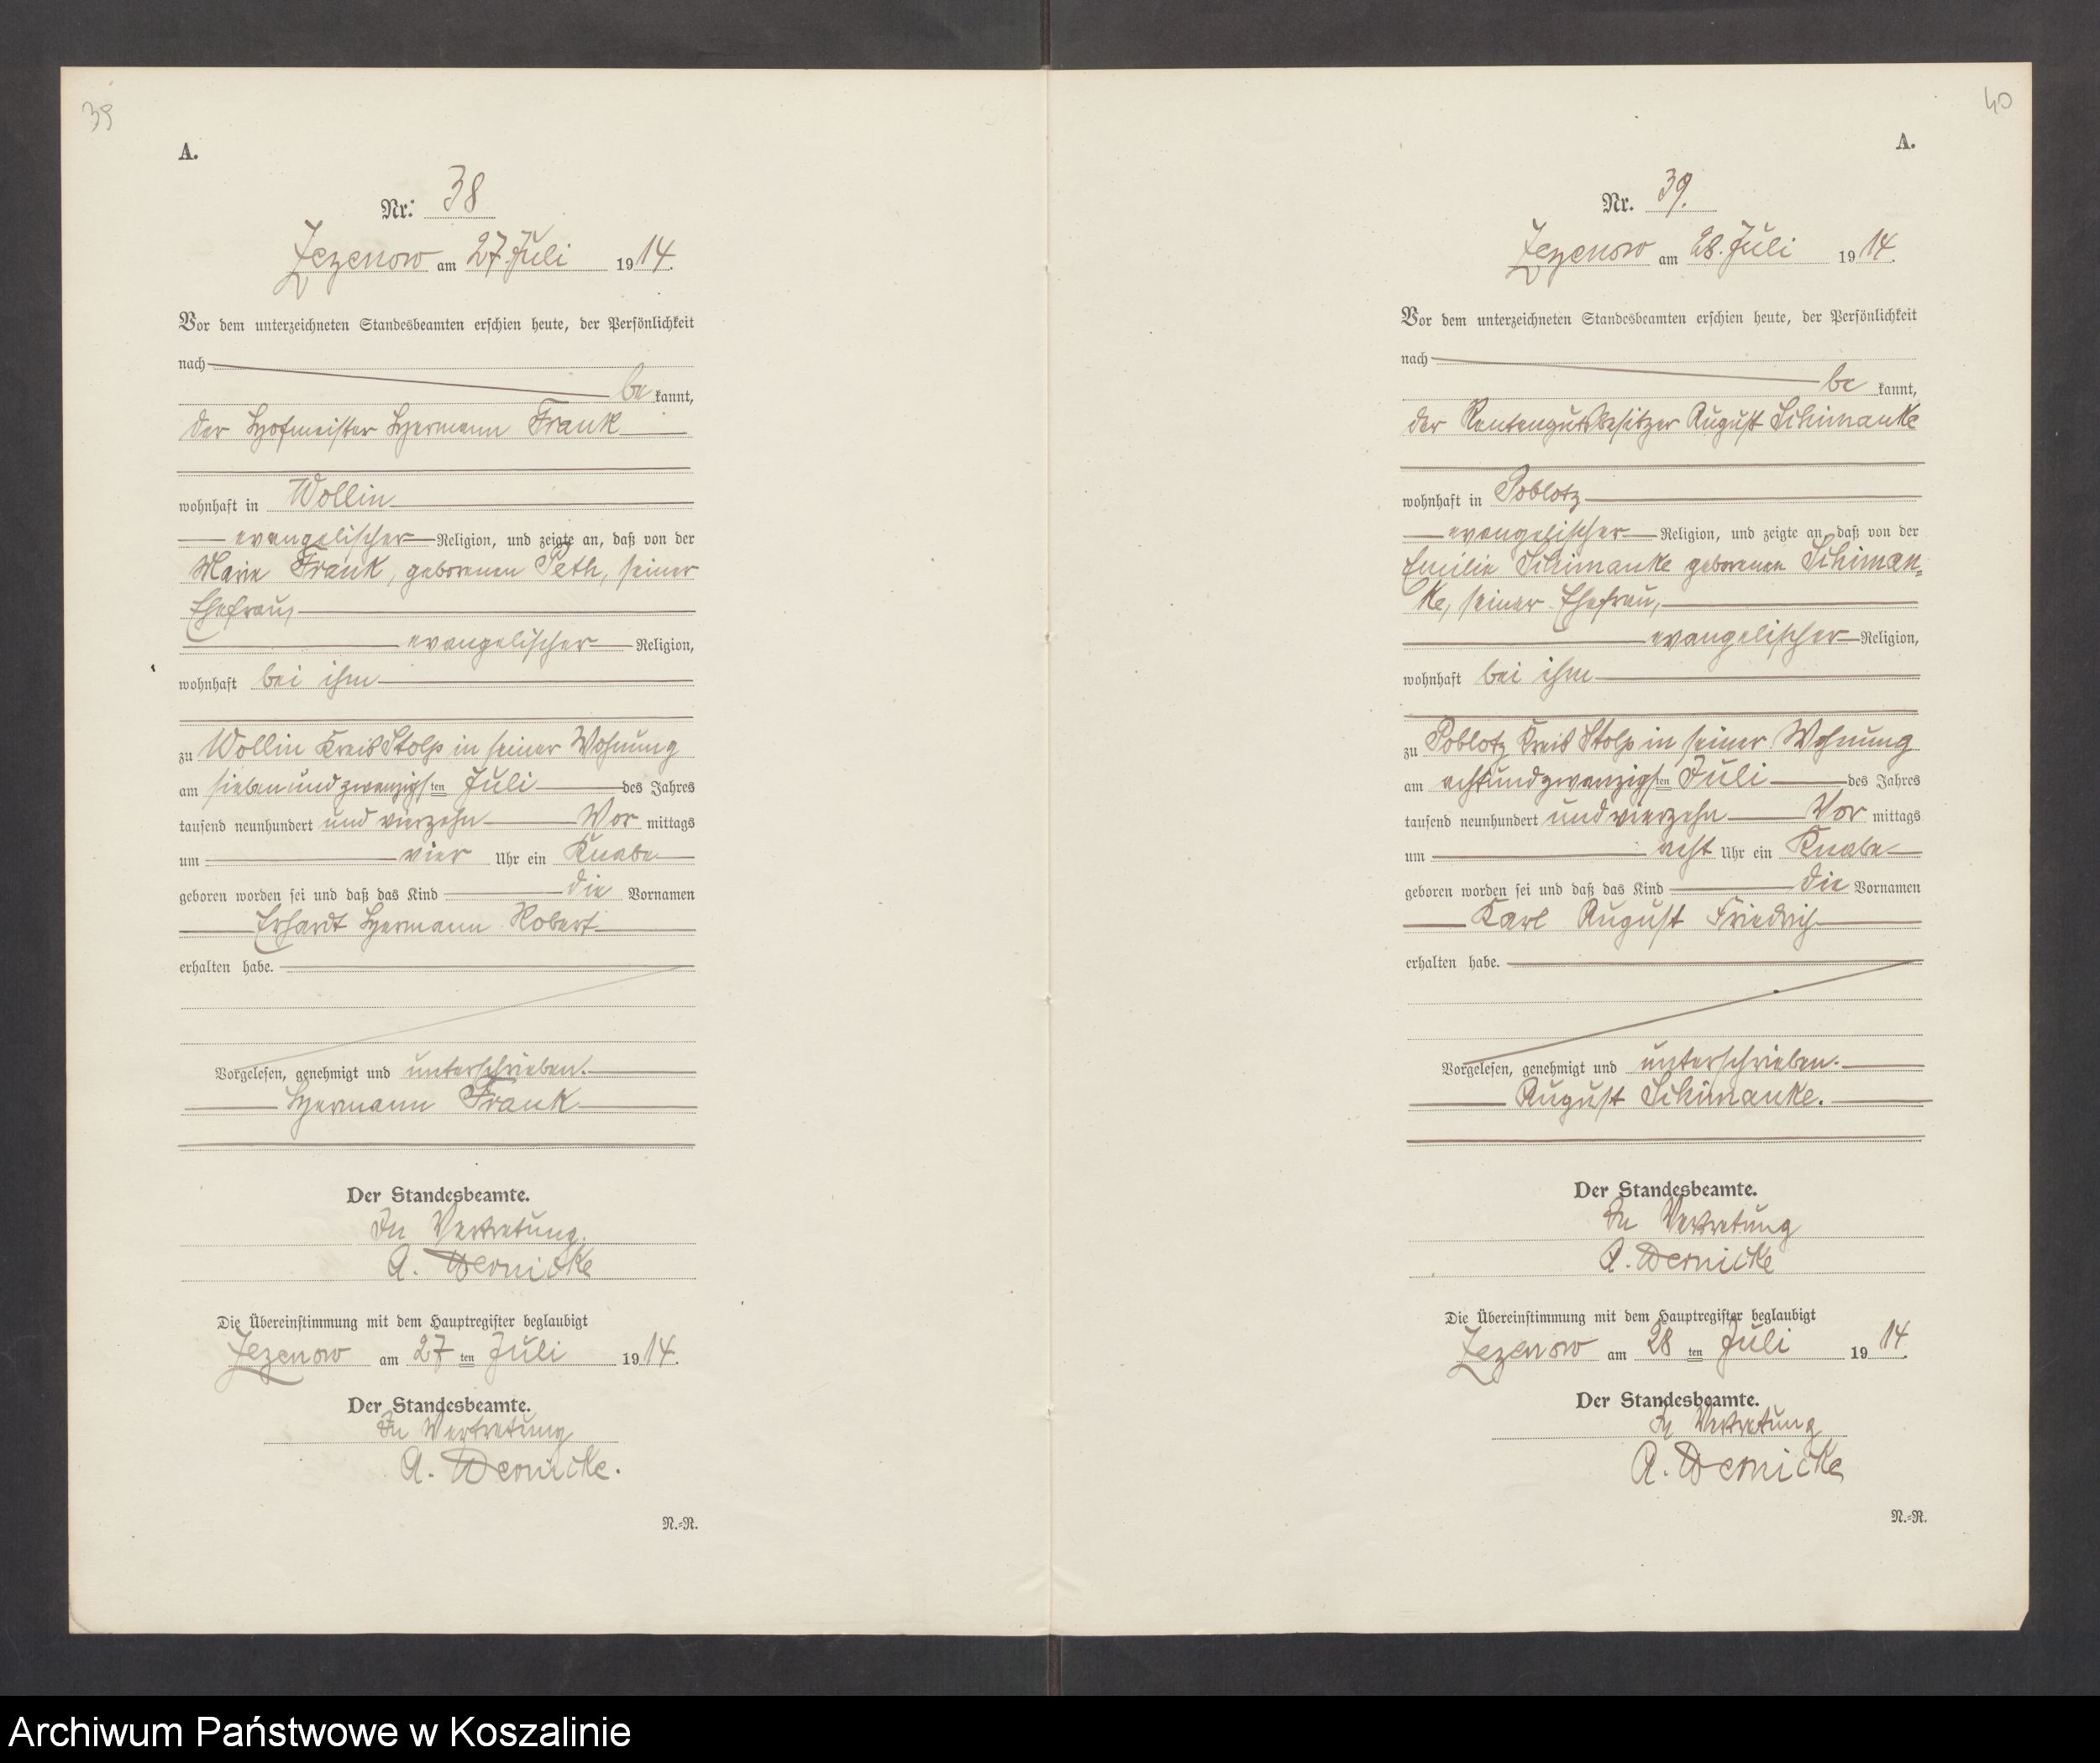 39
A.
Nr. 38
Zezenow am 27. Juli 1914.
Vor dem unterzeichneten Standesbeamten erschien heute, der Persönlichkeit
nach
be kannt,
der Hofmeister Hermann Frank
wohnhaft in Wollin
evangelischer Religion, und zeigte an, daß von der
Marie Frank, geborenen Peth, seiner
Ehefrau,
evangelischer Religion,
wohnhaft bei ihm
zu Wollin Kreis Stolp in seiner Wohnung
am siebenundzwanzigsten Juli des Jahres
tausend neunhundert und vierzehn Vor mittags
um vier Uhr ein Knabe
geboren worden sei und daß das Kind die Vornamen
Erhardt Hermann Robert
erhalten habe.
Vorgelesen, genehmigt und unterschrieben.
Hermann Frank
Der Standesbeamte.
In Vertretung.
A. Wernicke
Die Übereinstimmung mit dem Hauptregister beglaubigt
Zezenow am 27 ten Juli 1914.
Der Standesbeamte.
In Vertretung
A. Wernicke.
N.-R.
40
A.
Nr. 39.
Zezenow am 28. Juli 1914.
Vor dem unterzeichneten Standesbeamten erschien heute, der Persönlichkeit
nach
be kannt,
der Rentengutsbesitzer August Schimanke
wohnhaft in Poblotz
evangelischer Religion, und zeigte an, daß von der
Emilie Schimanke geborenen Schiman-
ke, seiner Ehefrau,
evangelischer Religion,
wohnhaft bei ihm
zu Poblotz Kreis Stolp in seiner Wohnung
am achtundzwanzigsten Juli des Jahres
tausend neunhundert und vierzehn Vor mittags
um acht Uhr ein Knabe
geboren worden sei und daß das Kind die Vornamen
Karl August Friedrich
erhalten habe.
Vorgelesen, genehmigt und unterschrieben.
August Schimanke.
Der Standesbeamte.
In Vertretung
A. Wernicke
Die Übereinstimmung mit dem Hauptregister beglaubigt
Zezenow am 28 ten Juli 1914.
Der Standesbeamte.
In Vertretung
A. Wernicke
N.-R.
Archiwum Państwowe w Koszalinie